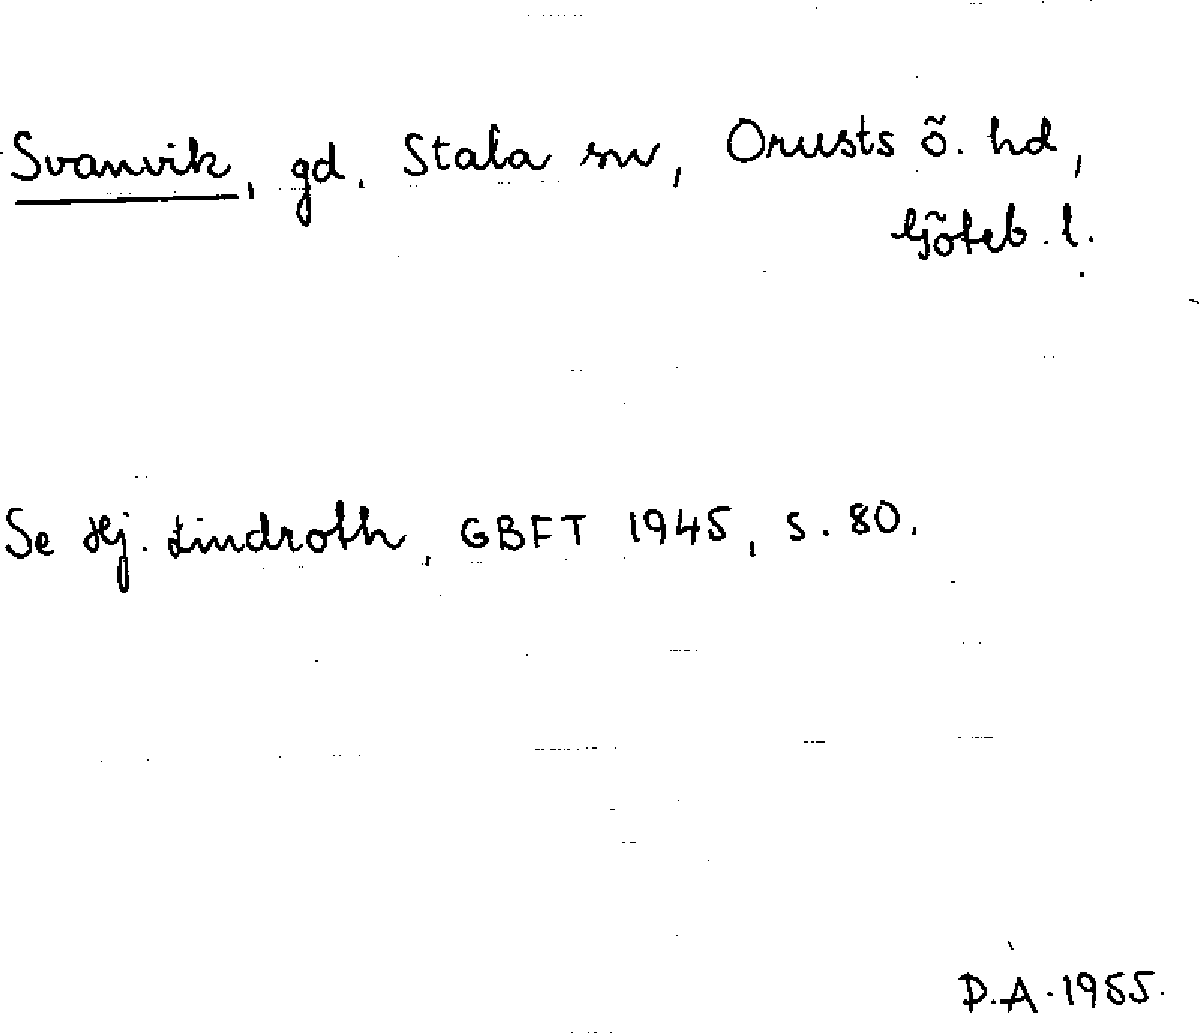 Svanvik, gd, Stala sn, Orusts ö. hd,
Göteb. l.
Se Hj. Lindroth, GBFT 1945, s. 80.
D.A. 1955.